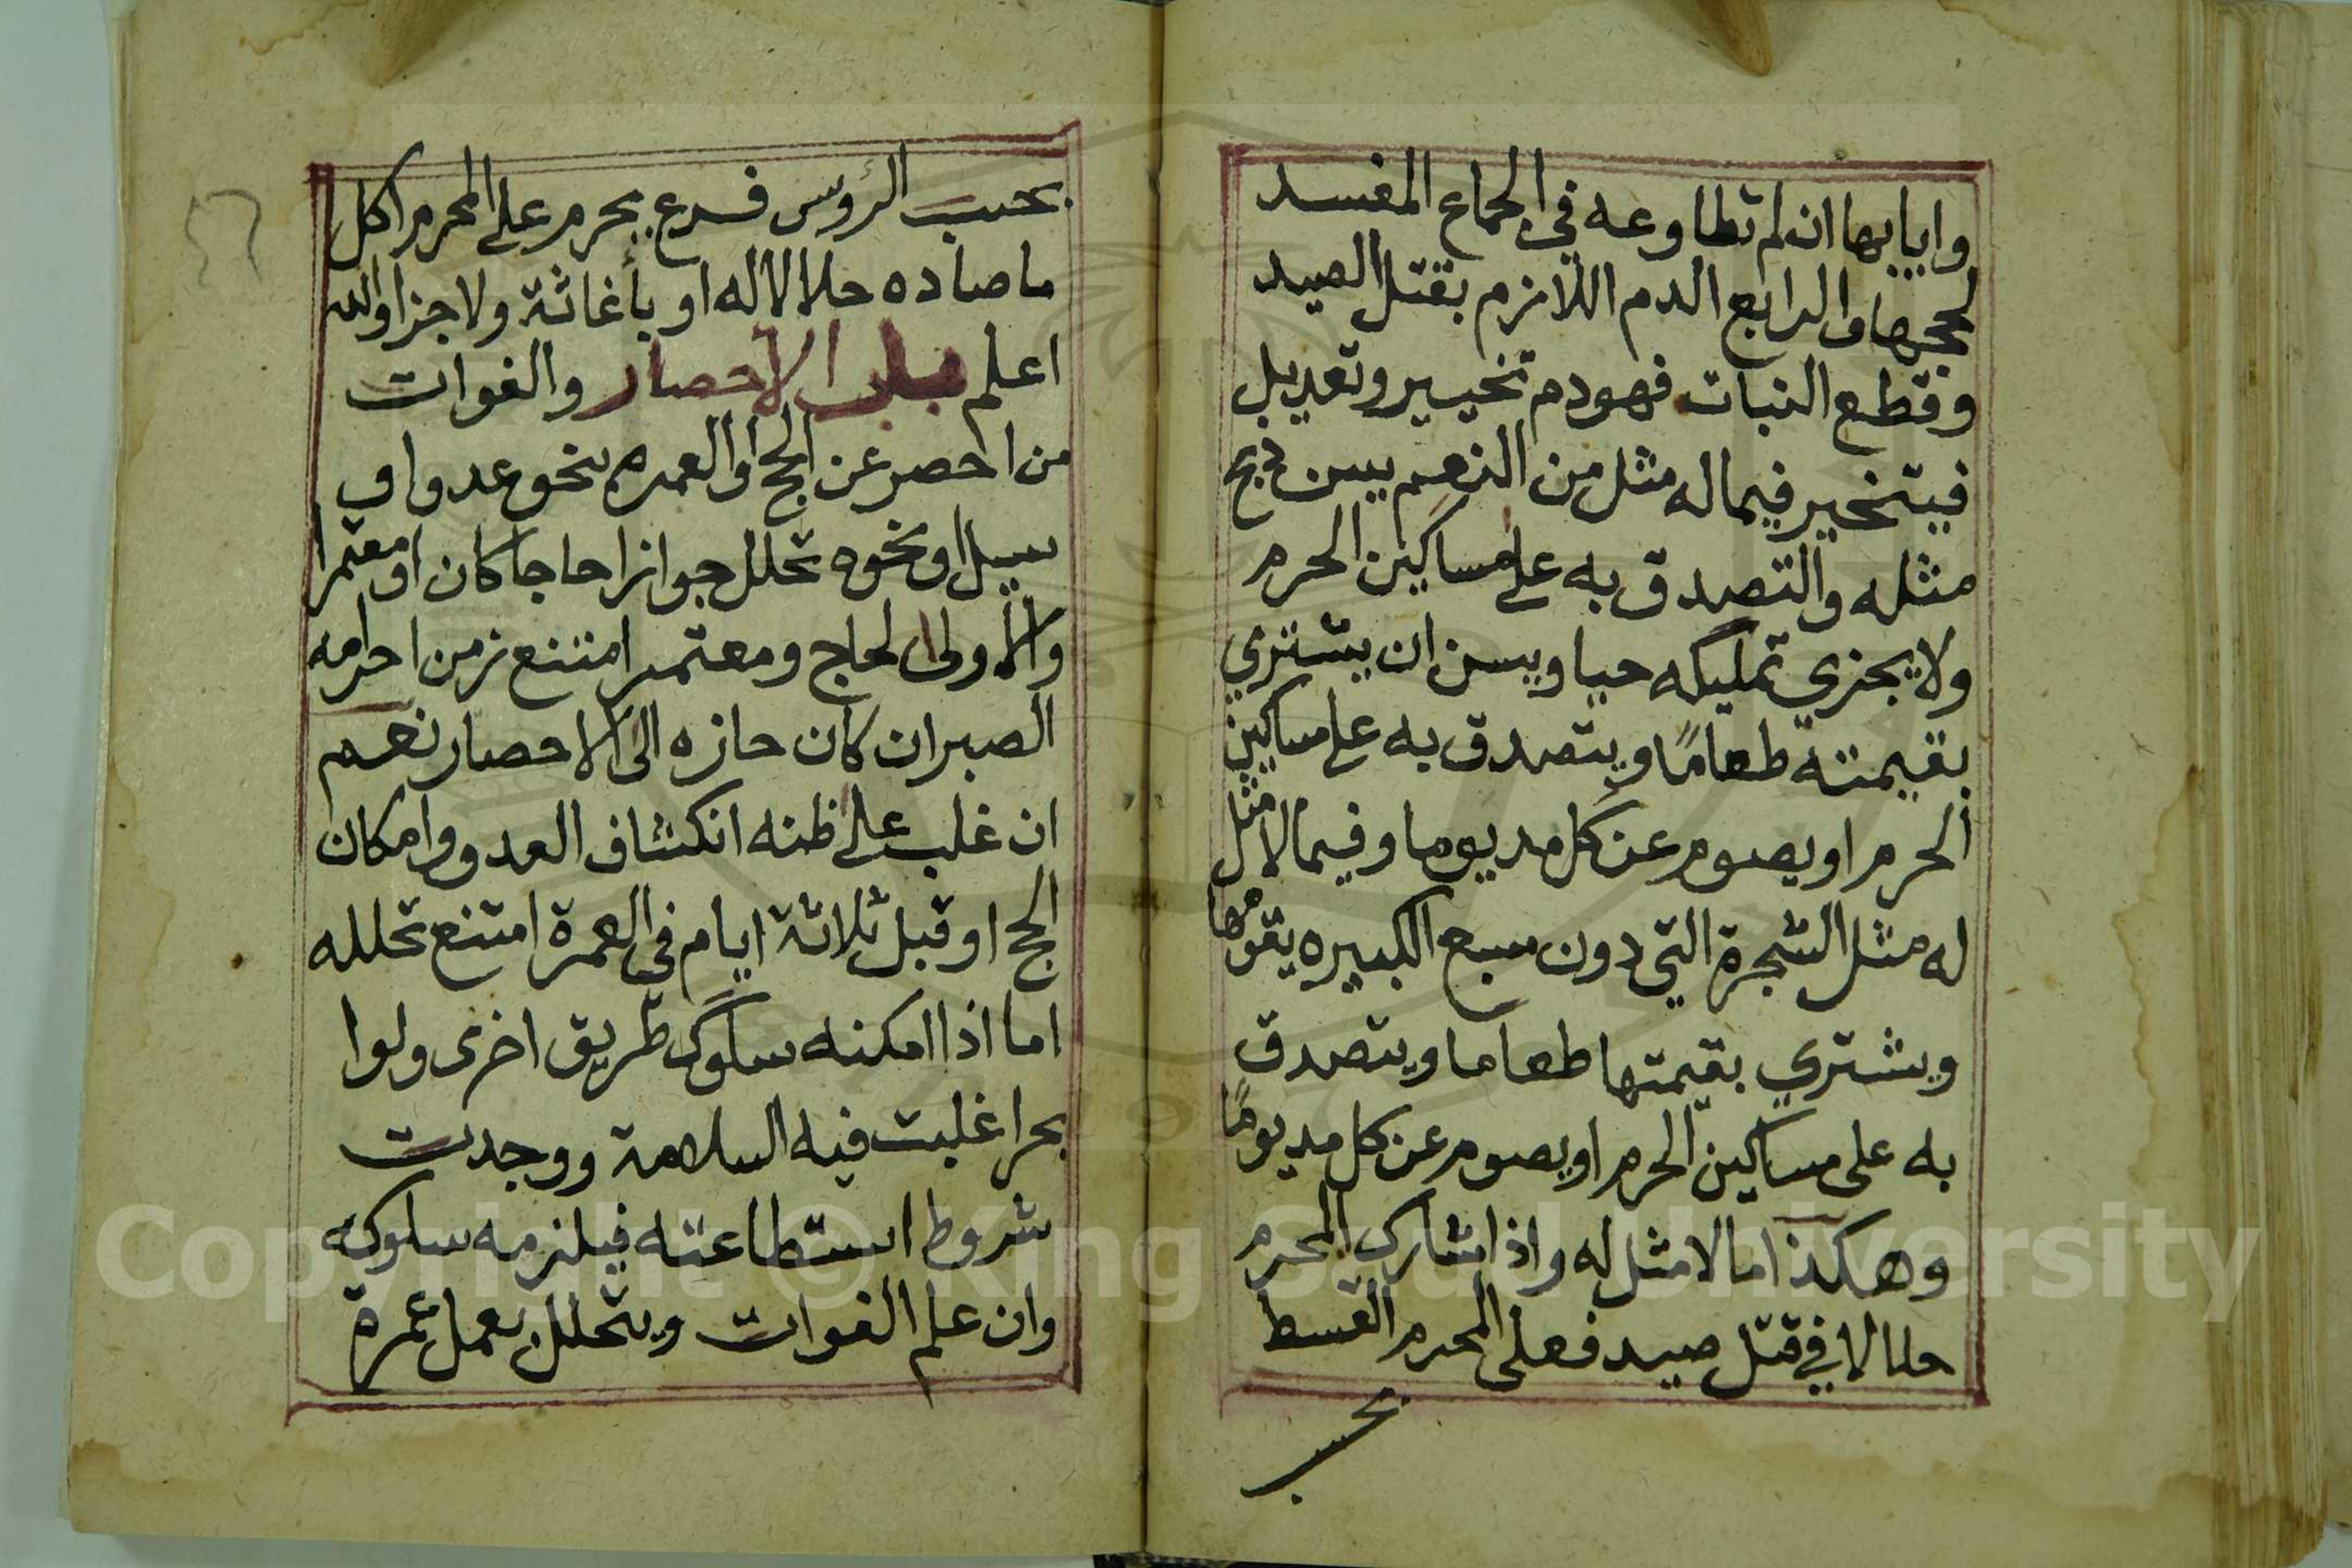 وايابها ان لم تطاوعه في الجماع المفسد
لحجها والرابع الدم اللازم بقتل الصيد
وقطع النبات فهو دم تخيير وتعديل
فيتخير فيما له مثل من النعم بين ذبح
مثله والتصدق به على مساكين الحرم
ولا يجزي تمليكه حيا وبين ان يشتري
بقيمته طعامًا ويتصدق به على مساكين
الحرم او يصوم عن كل مد يوما وفيما لا مثل
له مثل الشجرة التي دون سبع الكبيره يقومها
ويشتري بقيمتها طعاما ويتصدق
به على مساكين الحرم او يصوم عن كل مد يومًا
وهكذا ما لا مثل له واذا شارك المحرم
حلالا في قتل صيد فعلى المحرم القسط
بحسب
بحسب الرؤس فرع يحرم على المحرم اكل
ما صاده حلال له او بأغاثة ولا جزا والله
اعلم باب الاحصار والفوات
من احصر عن الحج او العمره بنحو عدو او
سيل او نحوه تحلل جوازا حاجا كان او معتمرا
والأولى لحاج ومعتمر امتنع زمن احرامه
الصبر ان كان حازه الى الاحصار نعم
ان غلب على ظنه انكشاف العدو وامكان
الحج او قبل ثلاثة ايام في العمرة امتنع تحلله
اما اذا امكنه سلوك طريق اخرى ولوا
بحرا غلبت فيه السلامة ووجدت
شروط استطاعته فيلزمه سلوكه
وان علم الفوات ويتحلل بعمل عمرة
Copyright © King Saud University